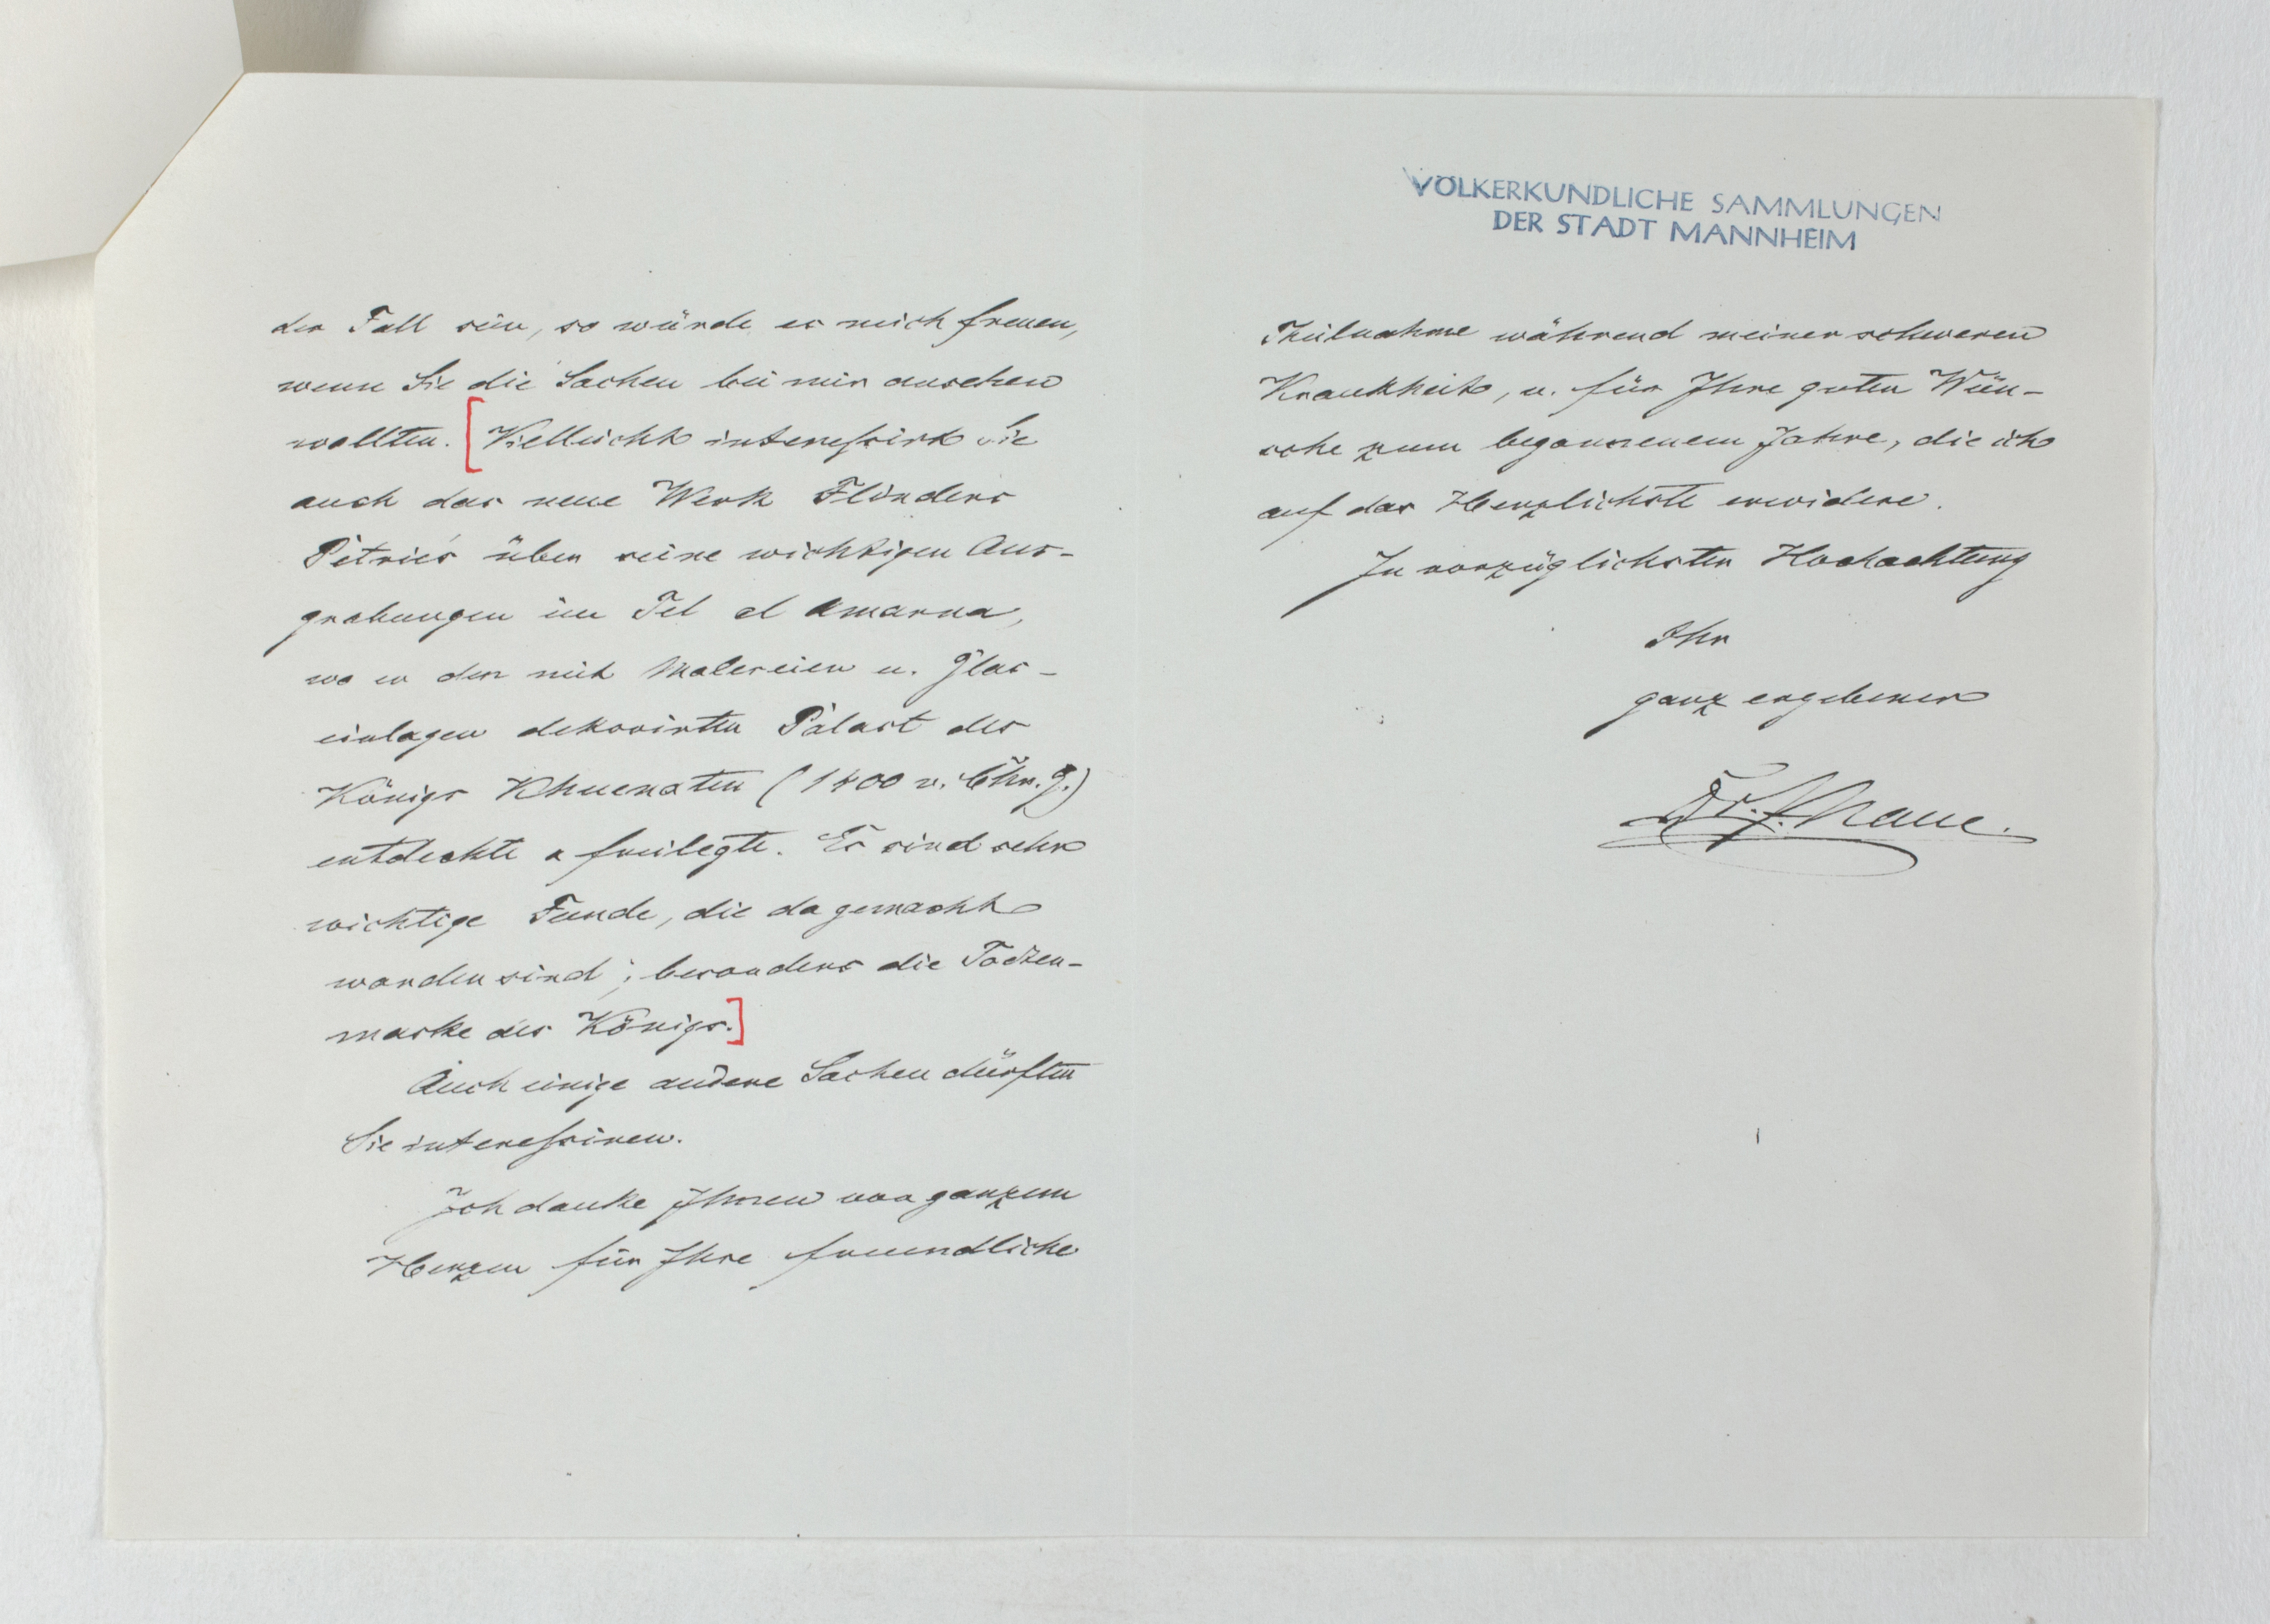 der Fall sein, so würde es mich freuen,
wenn Sie die Sachen bei mir ansehen
wollten. [Vielleicht interessirt Sie
auch das neue Werk Flinders
Petrie's über seine wichtigen Aus-
grabungen im Tel el Amarna,
wo er den mit Malereien u. Glas-
einlagen dekorirten Palast des
Königs Khuenaten (1400 v. Chr. G.)
entdeckte u freilegte. Es sind sehr
wichtige Funde, die da gemacht
worden sind; besonders die Todten-
maske des Königs.]
Auch einige andere Sachen dürften
Sie interessiren.
Ich danke Ihnen von ganzem
Herzen für Ihre freundliche
VÖLKERKUNDLICHE SAMMLUNGEN
DER STADT MANNHEIM
Theilnahme während meiner schweren
Krankheit, u. für Ihre guten Wün-
sche zum begonnenem Jahre, die ich
auf das Herzlichste erwidere.
In vorzüglichster Hochachtung
Ihr
ganz ergebener
Dr. J. Naue.